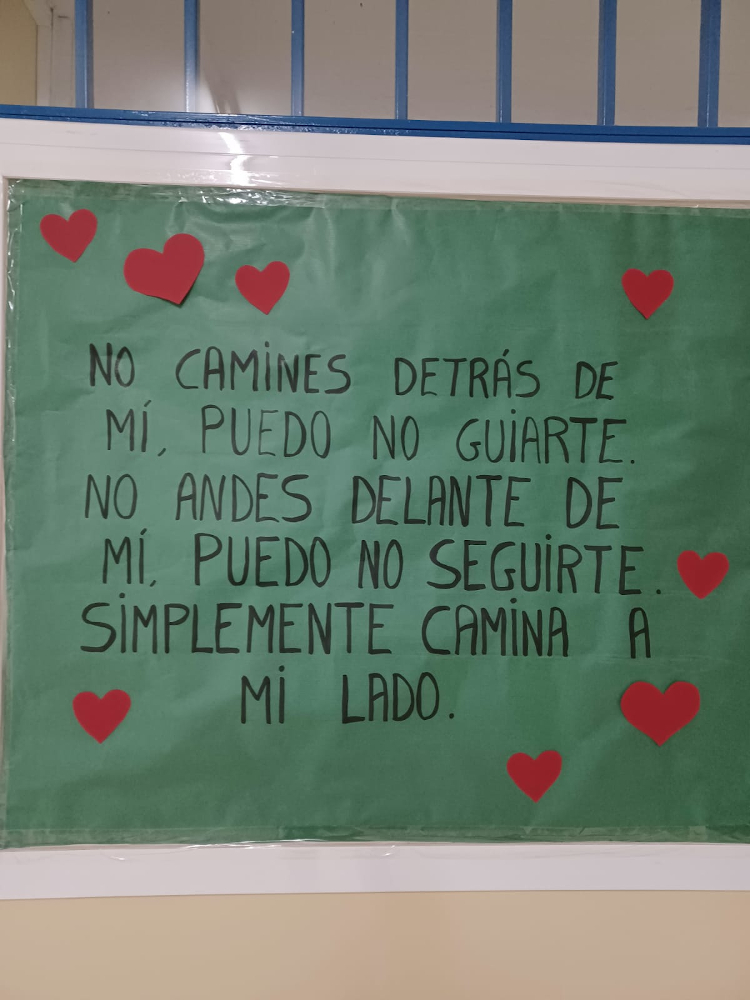 NO CAMINES DETRÁS DE
MÍ, PUEDO NO GUIARTE.
NO ANDES DELANTE DE
MÍ, PUEDO NO SEGUIRTE.
SIMPLEMENTE CAMINA A
MI LADO.